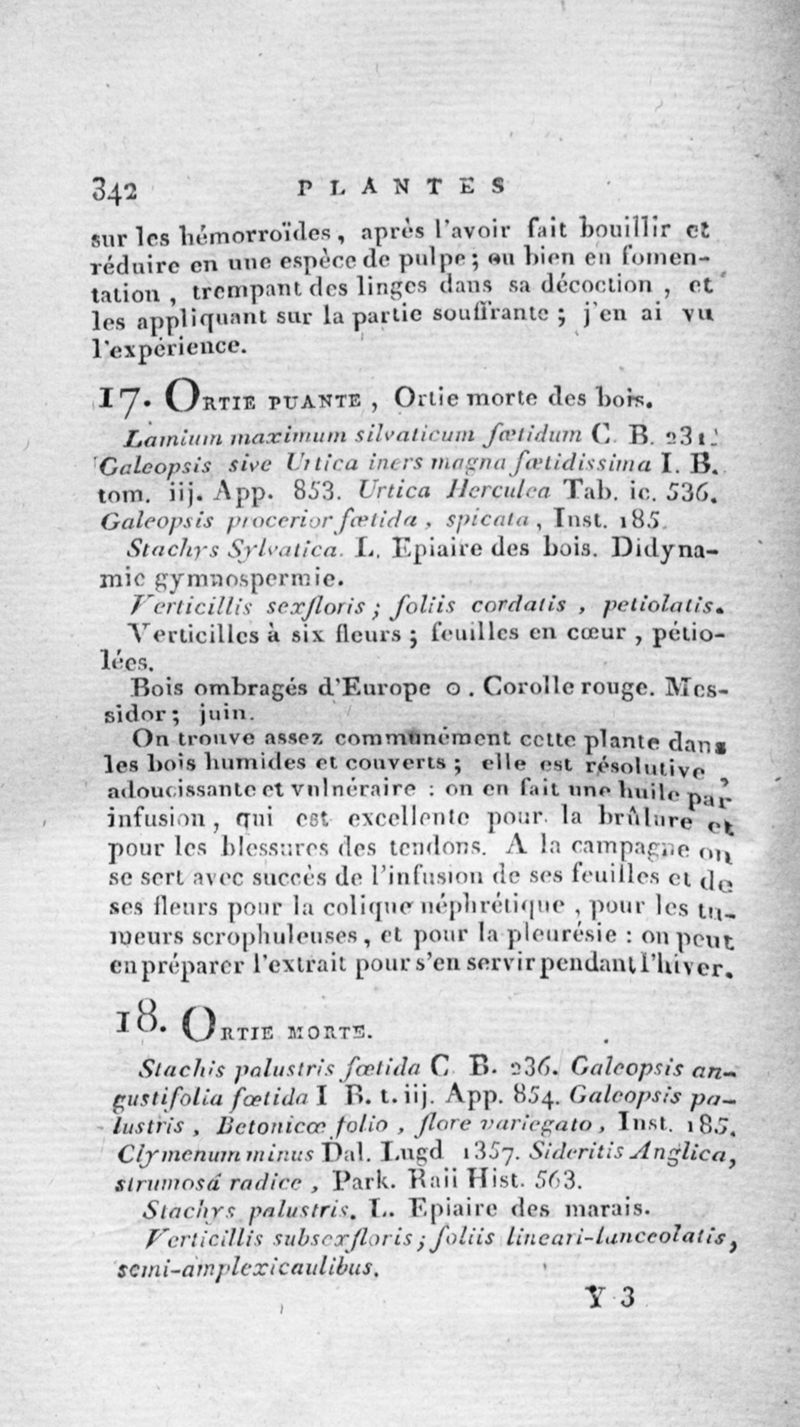 342 PLANTES
sur les hémorroïdes, après l'avoir fait bouillir et
réduire en une espèce de pulpe; ou bien en fomen-
tation, trempant des linges dans sa décoction, et
les appliquant sur la partie souffrante; j'en ai vu
l'expérience.
17. ORTIE PUANTE, Ortie morte des bois.
Lamium maximum silvaticum fœtidum C. B. 231.
Galeopsis sive Urtica iners magna fœtidissima I. B.
tom. iij. App. 853. Urtica Herculea Tab. ic. 536.
Galeopsis procerior fœtida, spicata, Inst. 185.
Stachys Sylvatica. L. Epiaire des bois. Didyna-
mie gymnospermie.
Verticillis sexfloris; foliis cordatis, petiolatis.
Verticilles à six fleurs; feuilles en cœur, pétio-
lées.
Bois ombragés d'Europe o. Corolle rouge. Mes-
sidor; juin.
On trouve assez communément cette plante dans
les bois humides et couverts; elle est résolutive,
adoucissante et vulnéraire : on en fait une huile par
infusion, qui est excellente pour la brûlure et
pour les blessures des tendons. A la campagne on
se sert avec succès de l'infusion de ses feuilles et de
ses fleurs pour la colique néphrétique, pour les tu-
meurs scrophuleuses, et pour la pleurésie : on peut
en préparer l'extrait pour s'en servir pendant l'hiver.
18. ORTIE MORTE.
Stachis palustris fœtida C. B. 236. Galeopsis an-
gustifolia fœtida I B. t. iij. App. 854. Galeopsis pa-
lustris, Betonicæ folio, flore variegato, Inst. 185.
Clymenum minus Dal. Lugd 1357. Sideritis Anglica,
strumosâ radice, Park. Raii Hist. 563.
Stachys palustris. L. Epiaire des marais.
Verticillis subsexfloris; foliis lineari-lanceolatis,
semi-amplexicaulibus.
Y 3